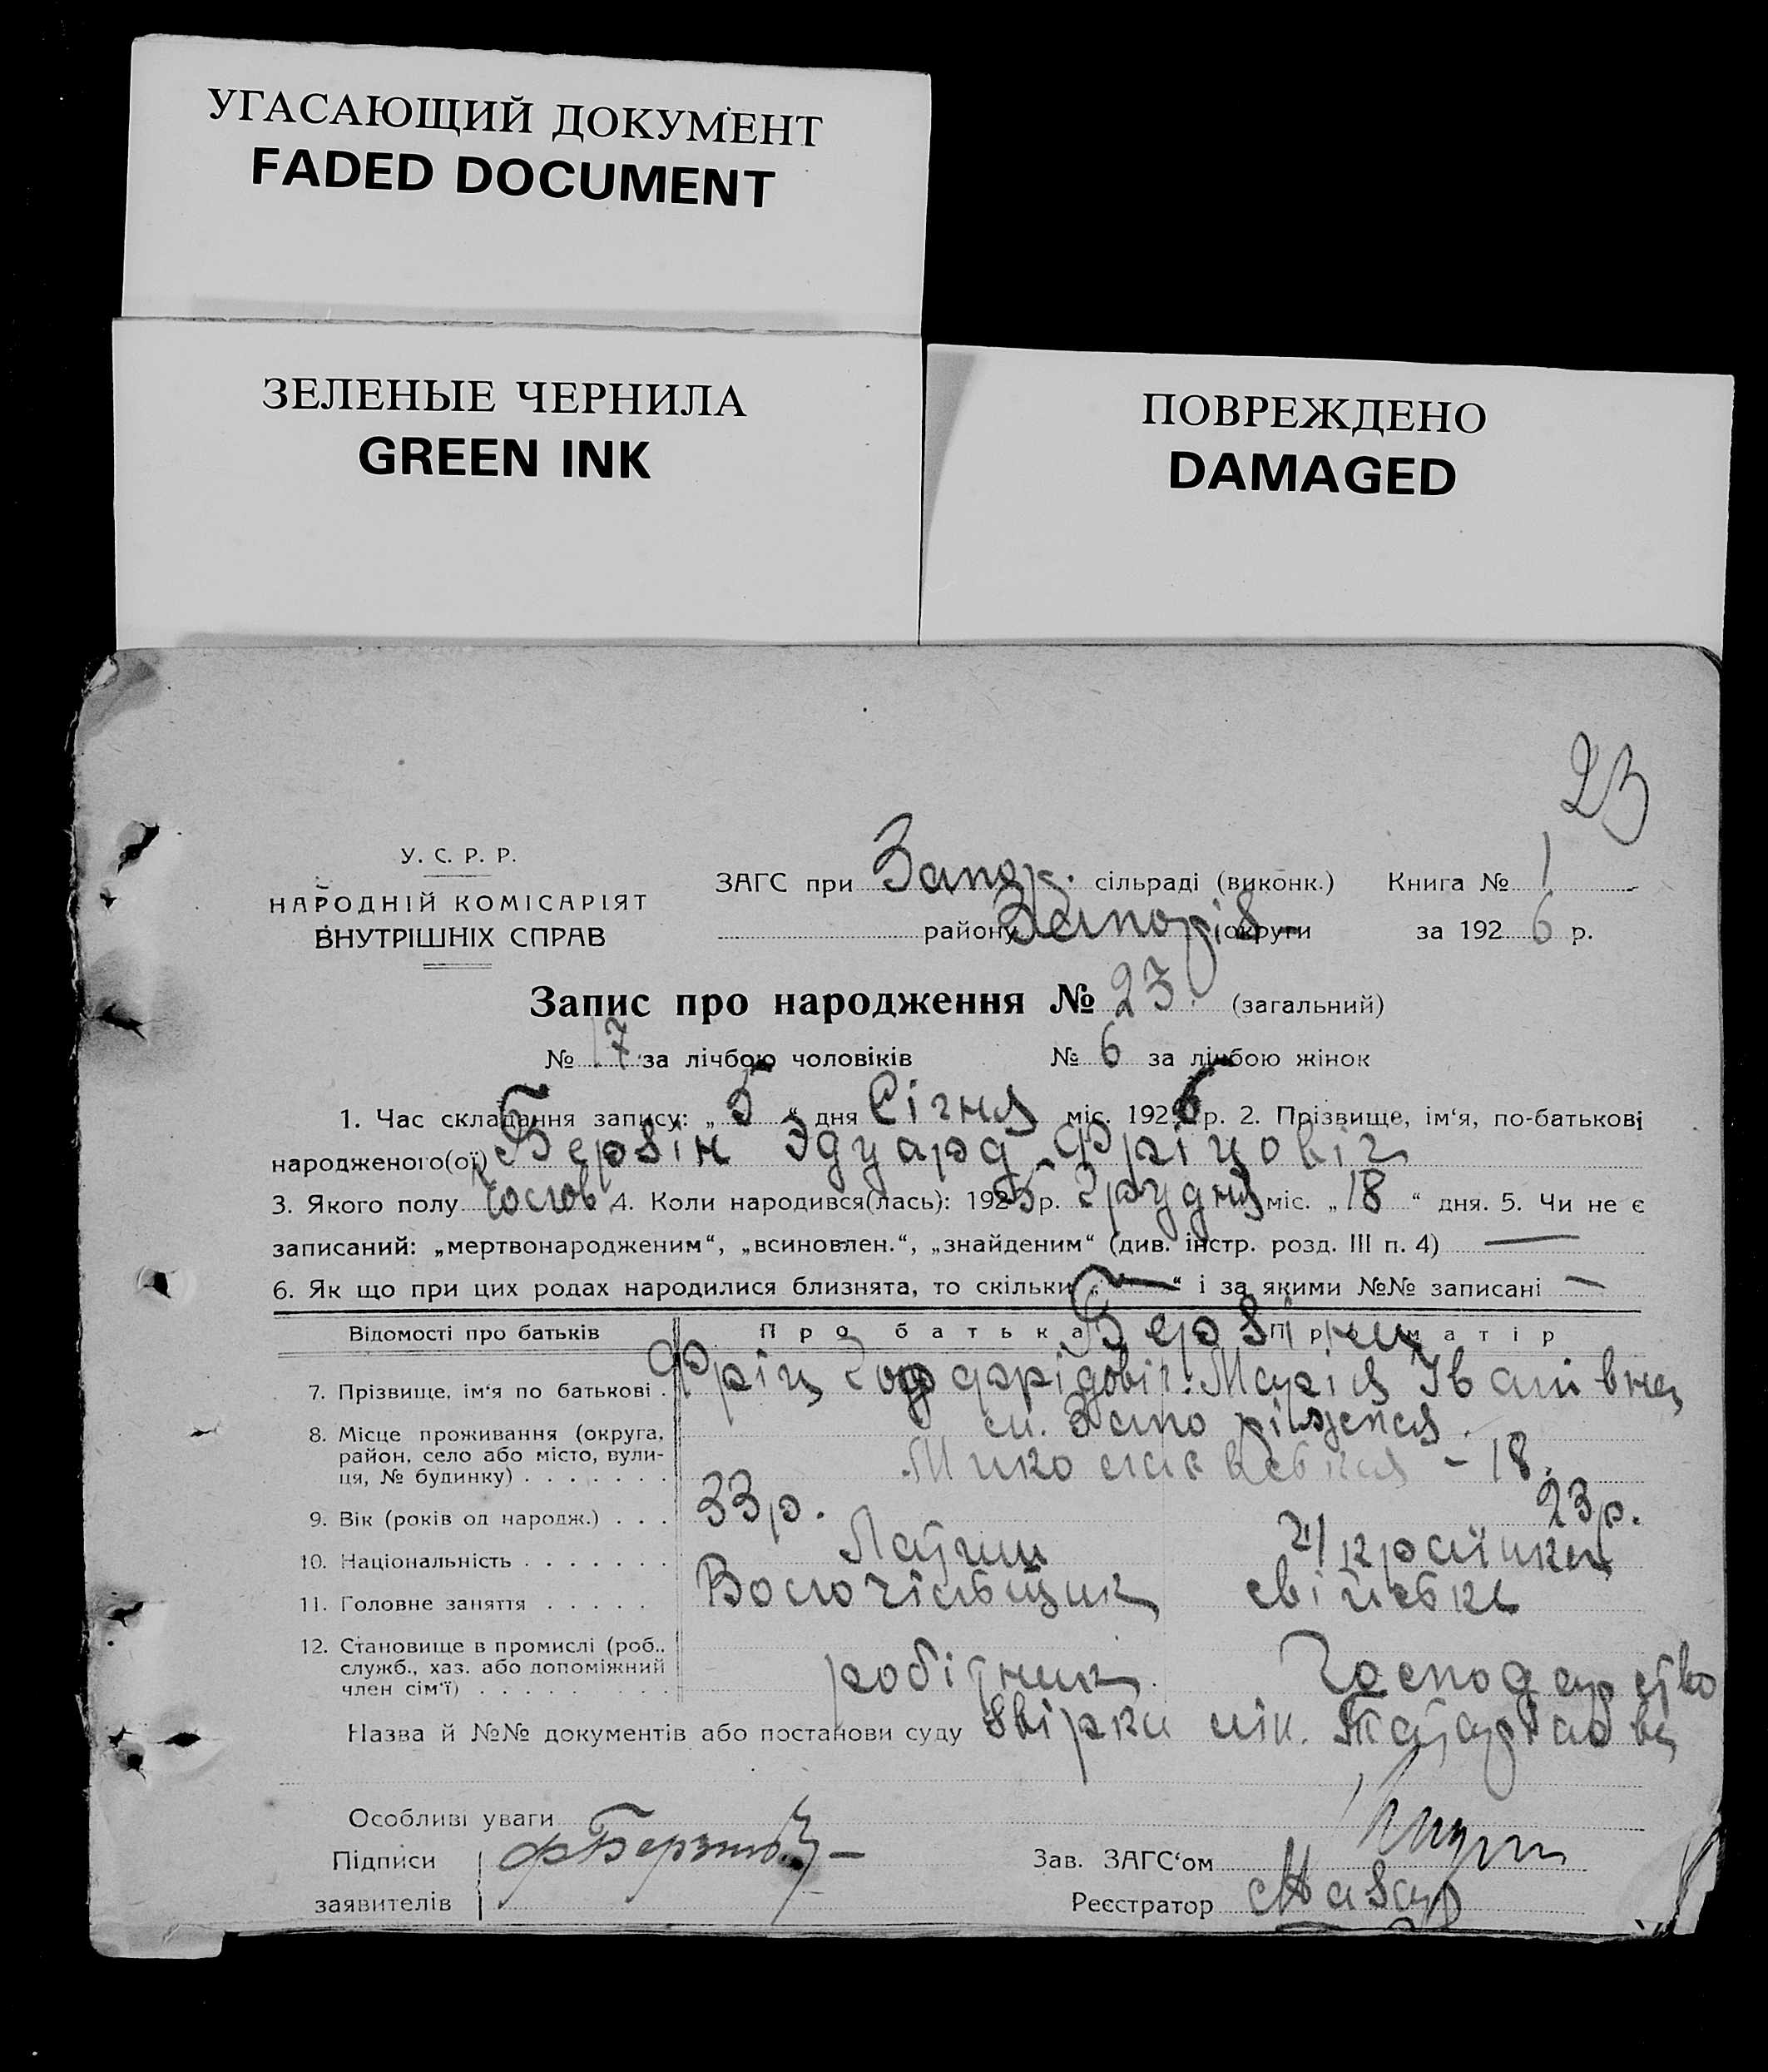 УГАСАЮЩИЙ ДОКУМЕНТ
FADED DOCUMENT
ЗЕЛЕНЫЕ ЧЕРНИЛА
GREEN INK
ПОВРЕЖДЕНО
DAMAGED
23
У. С. Р. Р.
НАРОДНІЙ КОМІСАРІЯТ
ВНУТРІШНІХ СПРАВ
ЗАГС при Запор. сільраді (виконк.) Книга № 1
району Запоріз- округи за 1926 р.
Запис про народження № 23. (загальний)
№ 17 за лічбою чоловіків № 6 за лічбою жінок
1. Час складання запису: „5“ дня Січня міс. 1926 р. 2. Прізвище, ім‘я, по-батькові
народженого(ої) Берзін Эдуард Фріцовіч
3. Якого полу Чолов. 4. Коли народився(лась): 1925 р. Грудня міс. „18“ дня. 5. Чи не є
записаний: „мертвонародженим“, „всиновлен.“, „знайденим“ (див. інстр. розд. III п. 4) —
6. Як що при цих родах народилися близнята, то скільки „—“ і за якими №№ записані —
Відомості про батьків Про батька Про матір
Берзіни
7. Прізвище, ім‘я по батькові . Фріц Годфрідовіч. Марія Іванівна
8. Місце проживання (округа, район, село або місто, вулиця, № будинку) . . . . . . . м. Запоріжжя.
- 18.
9. Вік (років од народж.) . . . 33 р. 23 р.
10. Національність . . . . . . . Латиш Українка
11. Головне заняття . . . . . Волочільщик свійське
12. Становище в промислі (роб., служб., хаз. або допоміжний член сім‘ї) . . . . . . . . . робітник. Господарство
Назва й №№ документів або постанови суду Звірки лік.
Особливі уваги
Підписи
заявителів
ФБерзинь
Зав. ЗАГС‘ом
Реєстратор Назар